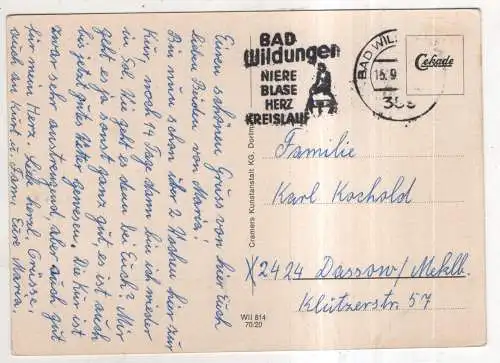 Euren schönen Gruss von hier Euch
lieben Beiden von Maria!
Bin nun schon über 2 Wochen hier zur
Kur, noch 14 Tage dann bin ich wieder
in Sol. Wie geht es denn bei Euch? Mir
geht es ja sonst ganz gut, es ist auch
bis jetzt gutes Wetter gewesen. Die Kur ist
zwar sehr anstrengend, aber auch gut
für mein Herz. Liebe herzl. Grüsse,
auch an Kurt u. Fam., Eure Maria.
BAD
Wildungen
NIERE
BLASE
HERZ
KREISLAUF
BAD WIL
15.9
355
Cekade
Cramers Kunstanstalt KG, Dortmund
Wil 814
70/20
Familie
Karl Kochold
X 2424 Dassow/Meklb.
Klützerstr. 57